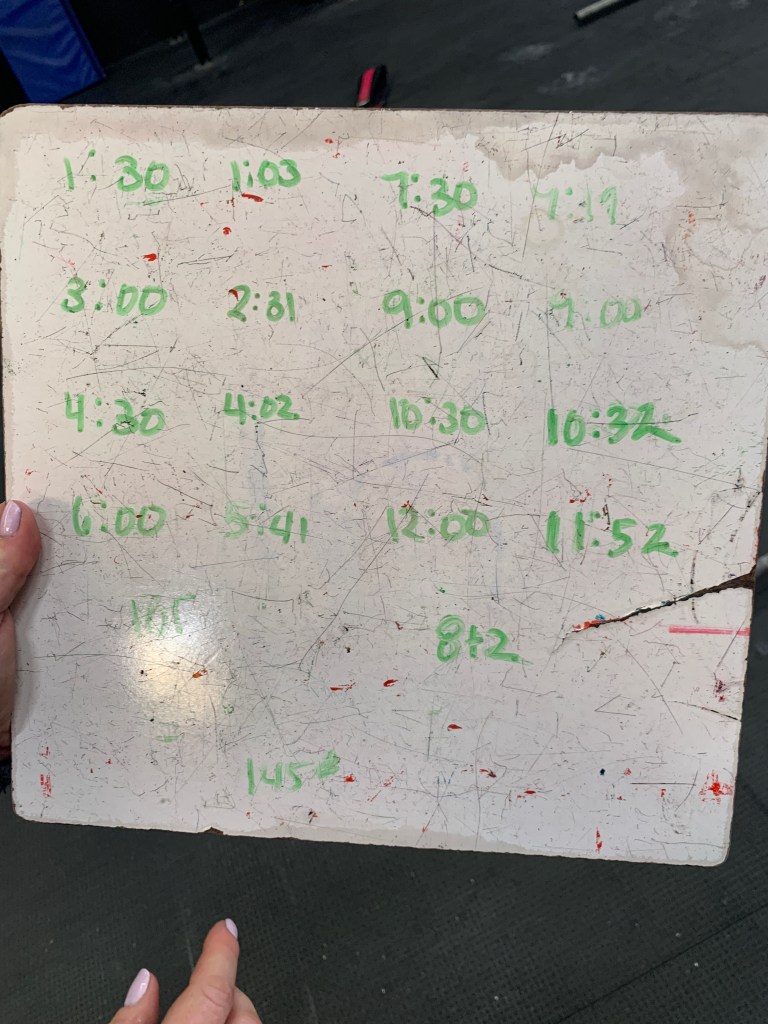 1:30 1:03 7:30 7:19
3:00 2:31 9:00 9:00
4:30 4:02 10:30 10:32
6:00 5:41 12:00 11:52
8+2
145#